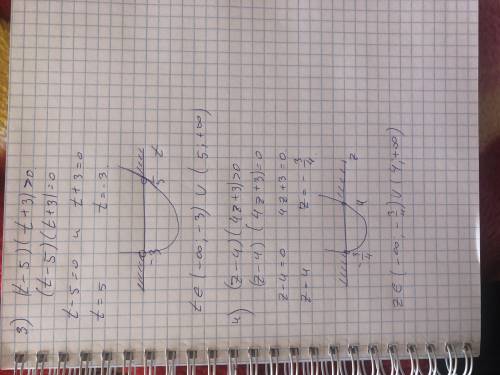 3) (t-5)(t+3)>0
(t-5)(t+3)=0
t-5=0 и t+3=0
t=5 t=-3
-3 5 t
t∈(-∞,-3)∪(5;+∞)
4) (z-4)(4z+3)>0
(z-4)(4z+3)=0
z-4=0 4z+3=0
z=4 z=-3/4
-3/4 4 z
z∈(-∞,-3/4)∪(4;+∞)